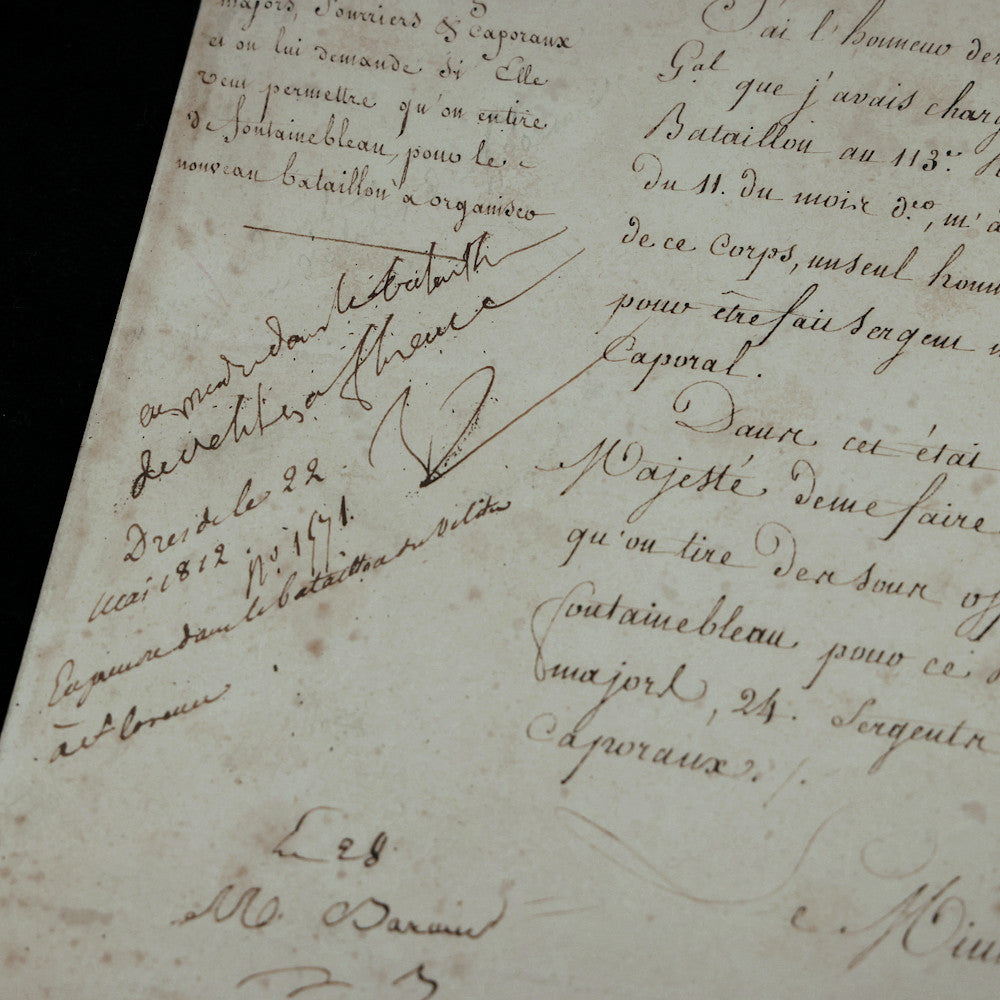 majors, fourriers & Caporaux
et on lui demande si Elle
veut permettre qu'on en tire
de fontainebleau, pour le
nouveau bataillon à organiser
en prendre dans le bataillon
de velites à florence
Dresde le 22
mai 1812 no. 1571.
En prendre dans le bataillon de velites
à florence
Le 28
M. Baraud
J'ai l'honneur de
Gal que j'avais charg
Bataillon au 113e
Du 11. du mois dro, m'a
de ce Corps, un seul homm
pour être fait Sergent
Caporal.
Dans cet état
Majesté de me faire
qu'on tire des sous of
fontainebleau pour ce
majors, 24. Sergents
Caporaux./.
Min